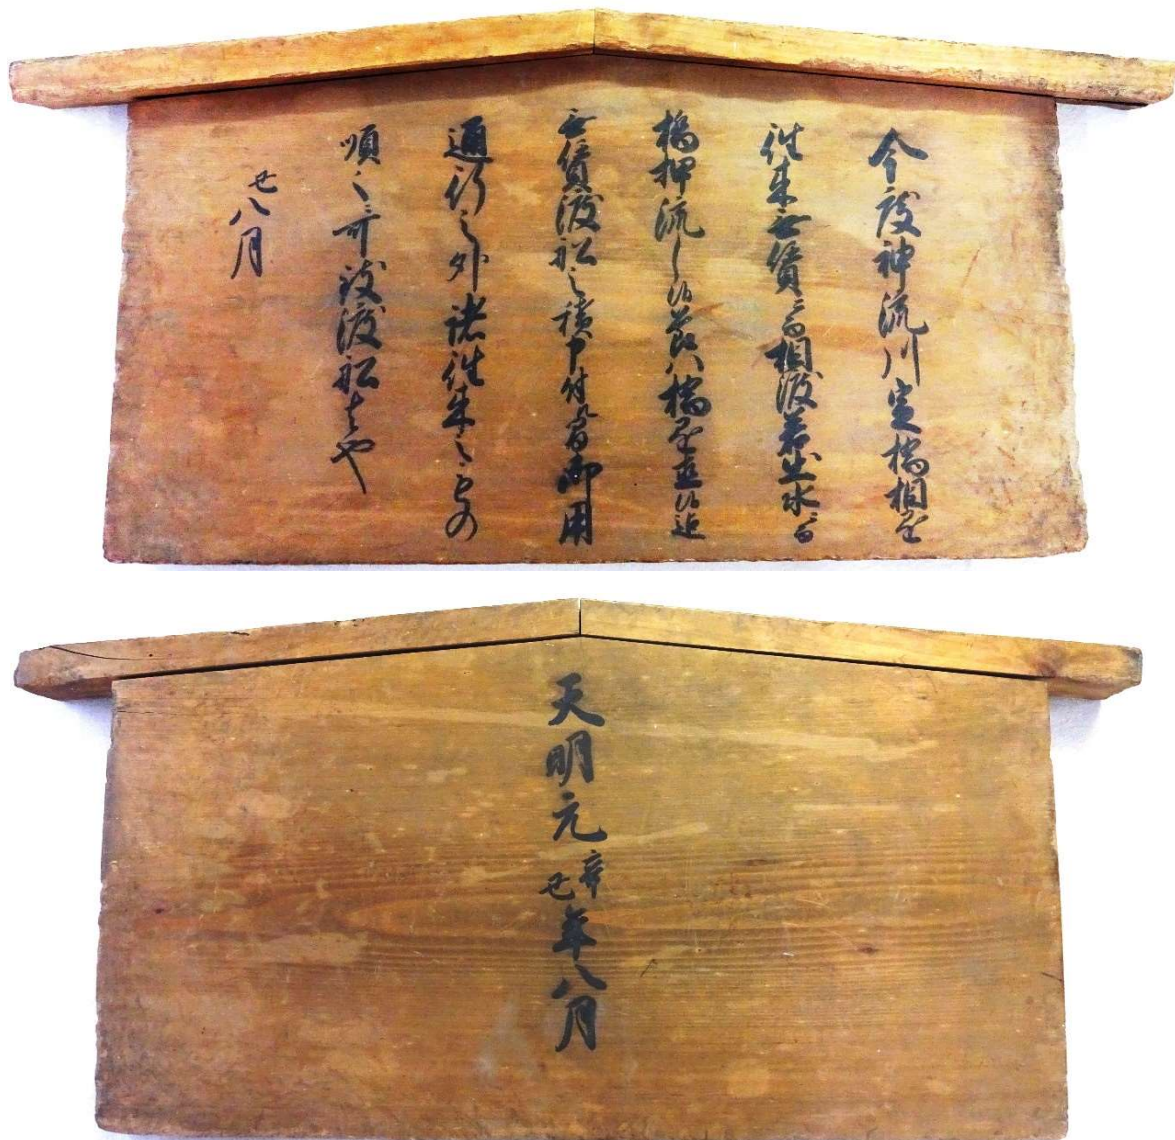 今度神流川定橋相建
往来無賃ニ而相渡若出水ニ而
橋押流し候節ハ橋建直候迄
無賃渡船之積申付候間御用
通行之外諸往来之もの
順々ニ可致渡船者也
丑八月
天明元辛丑年八月